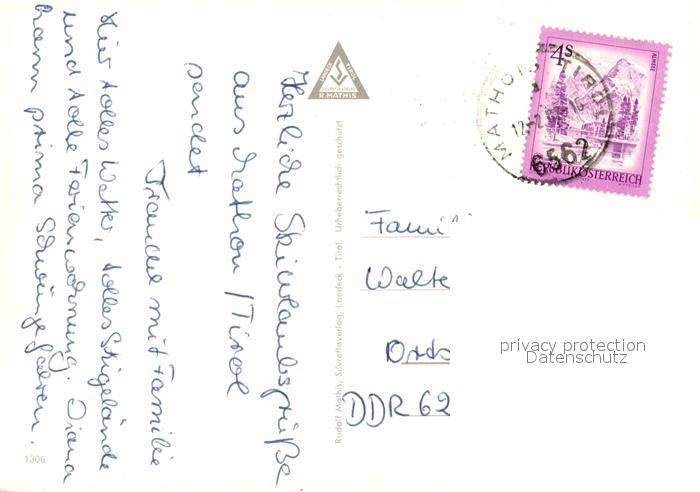 Herzliche Skiurlaubsgrüße
aus Mathon / Tirol
sendet
Traudel mit Familie
Hier tolles Wetter, tolles Skigelände
und tolle Ferienwohnung. Diana
kann prima Schwünge fahren.
1306
R. MATHIS
Rudolf Mathis, Silvrettaverlag, Landeck - Tirol. Urheberrechtlich geschützt
4 S
ALMSEE
REPUBLIK ÖSTERREICH
MATHON, TIROL
6562
Fami
Walte
DDR 62
privacy protection
Datenschutz